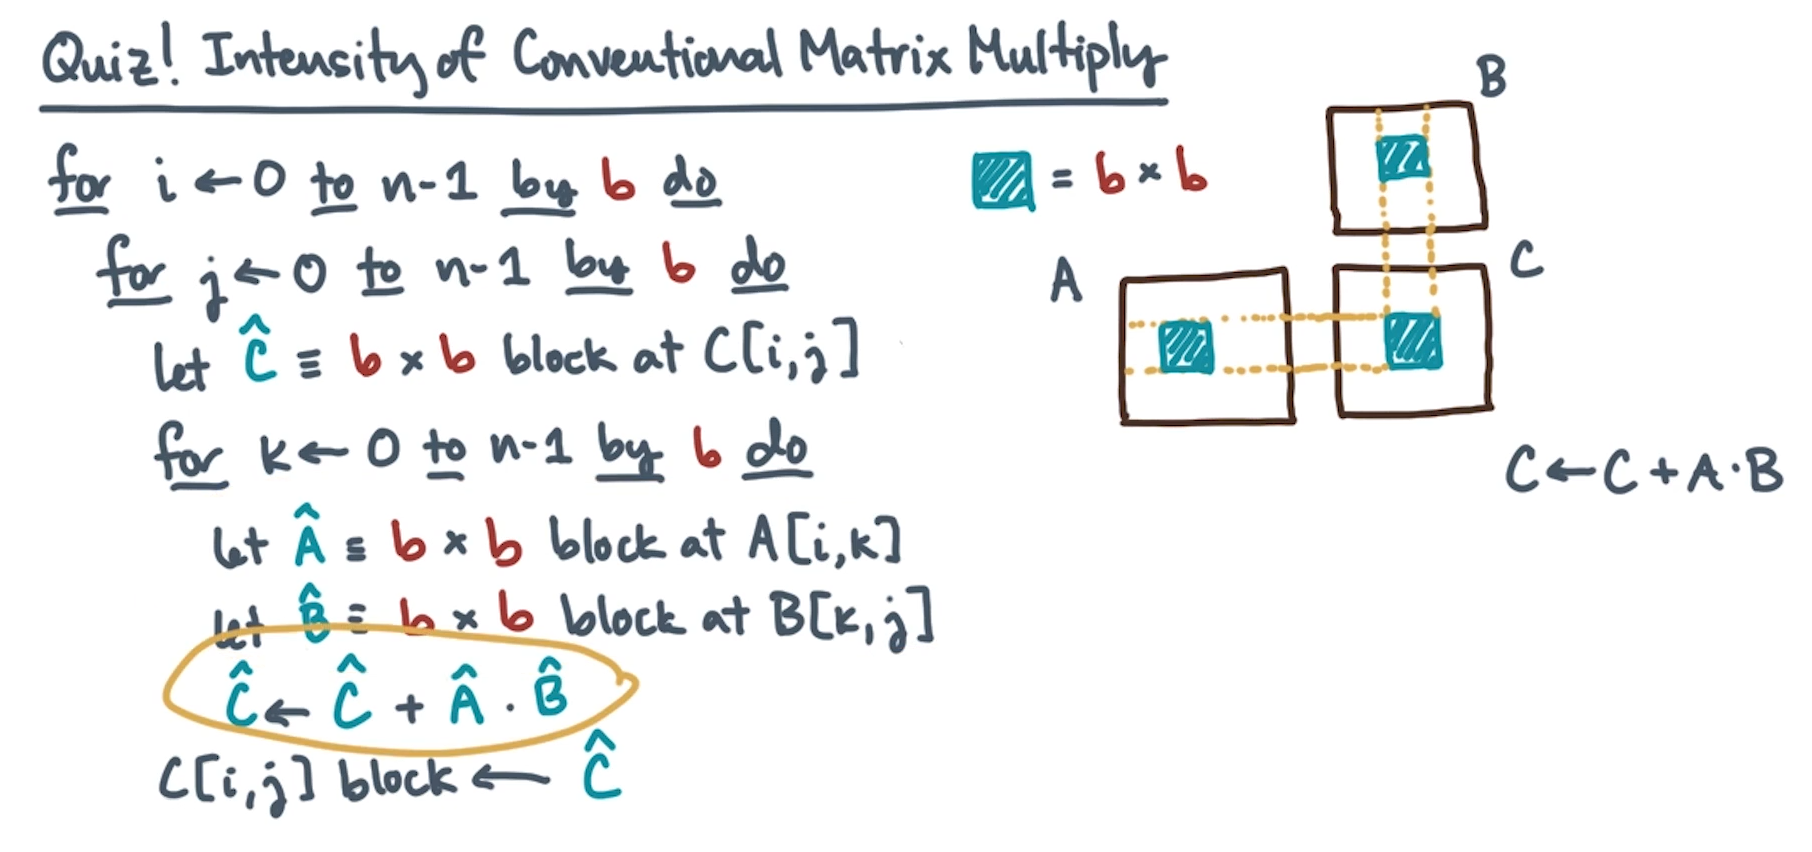 Quiz! Intensity of Conventional Matrix Multiply
for i ← 0 to n-1 by b do
for j ← 0 to n-1 by b do
let Ĉ ≡ b × b block at C[i,j]
for k ← 0 to n-1 by b do
let Â ≡ b × b block at A[i,k]
let B̂ ≡ b × b block at B[k,j]
Ĉ ← Ĉ + Â · B̂
C[i,j] block ← Ĉ
= b × b
B
A
C
C ← C + A · B